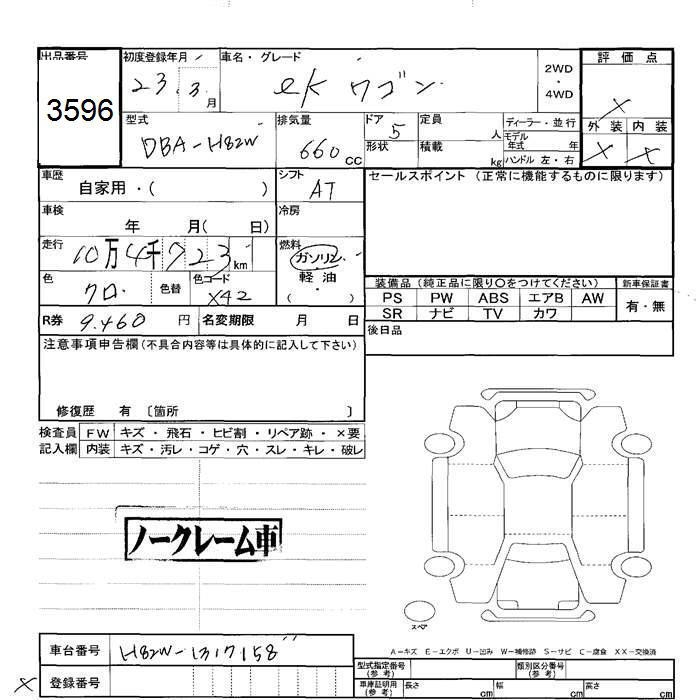 出品番号 初度登録年月 車名・グレード 評価点
3596 23. 3. 月 ek ワゴン 2WD ・ 4WD ×
型式 排気量 ドア 定員 ディーラー・並行 外装 内装
DBA-H82W 660 cc 5 人 モデル年式 年 × ×
形状 積載 kg ハンドル 左・右
車歴 自家用・( ) シフト AT セールスポイント (正常に機能するものに限ります)
車検 年 月( 日) 冷房
走行 10万4千723 km 燃料 ガソリン・
軽油・
( )
色 クロ 色替 色コード X42
装備品 (純正品に限り○をつけてください) 新車保証書
PS PW ABS エアB AW 有・無
SR ナビ TV カワ
R券 9.460 円 名変期限 月 日 後日品
注意事項申告欄(不具合内容等は具体的に記入して下さい)
修復歴 有 〔箇所 〕
検査員 FW キズ・飛石・ヒビ割・リペア跡・×要
記入欄 内装 キズ・汚レ・コゲ・穴・スレ・キレ・破レ
ノークレーム車
スペア
A-キズ E-エクボ U-凹み W-補修跡 S-サビ C-腐食 XX-交換済
車台番号 H82W-1317158
× 登録番号
型式指定番号(参考) 類別区分番号(参考)
車庫証明用(参考) 長さ cm 幅 cm 高さ cm